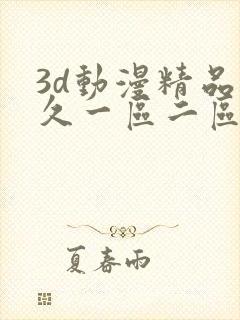 3d動漫精品
久一區二區
夏春雨